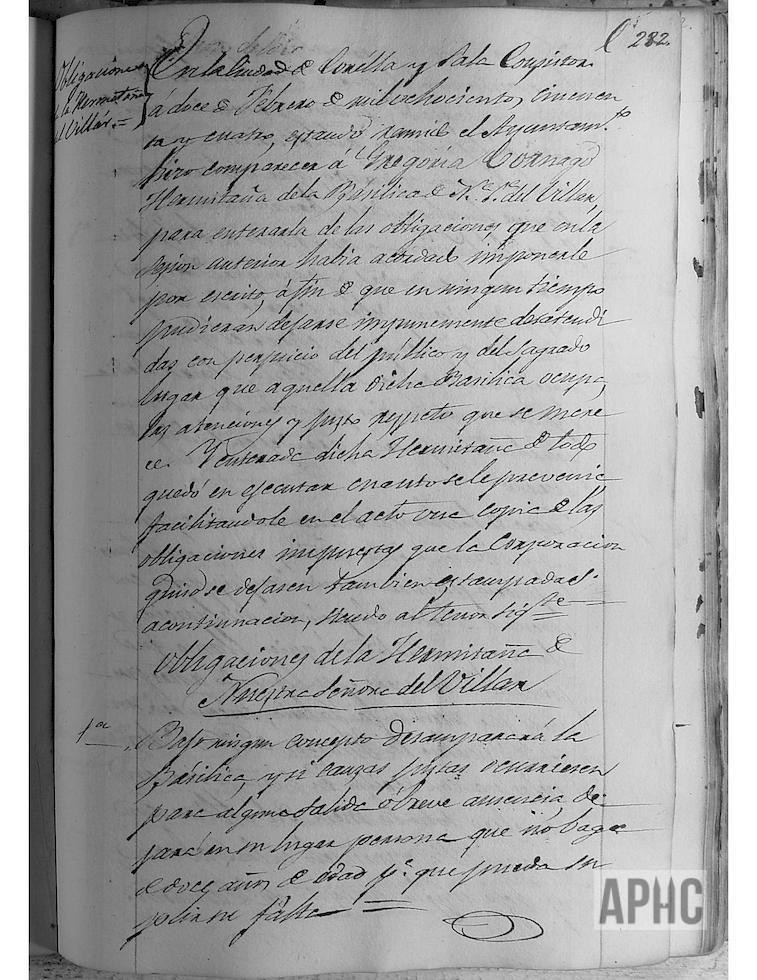 282
Obligaciones
de la Hermitaña
del Villar.=
En la Ciudad de Corella y Sala Consistorl
á doce de Febrero de mil ochocientos cincuen
ta y cuatro, estando reunido el Ayuntamto
hizo comparecer á Gregoria Cornago
Hermitaña de la Básilica de N.ª S.ª del Villar,
para enterarla de las obligaciones que en la
sesion anterior habia acordado imponerle
por escrito, á fin de que en ningun tiempo
pudieran dejarse impunemente desatendi
das con perjuicio del público y del sagrado
lugar que aquella dicha Basilica ocupa,
las atenciones y justo respeto que se mere
ce. Y enterada dicha Hermitaña de todo
quedó en ejecutar cuanto se le prevenia
facilitandole en el acto una copia de las
obligaciones impuestas que la Corporacion
quiso se dejasen tambien estampadas
acontinuacion, siendo al tenor sigte
Obligaciones de la Hermitaña de
Nuestra Señora del Villar
1ª
Bajo ningun concepto desamparará la
Básilica, y si causas justas ocurriesen
para alguna salida ó breve ausencia, de-
jará en su lugar persona que no baje
de doce años de edad pª que pueda su
plir su falta
APHC